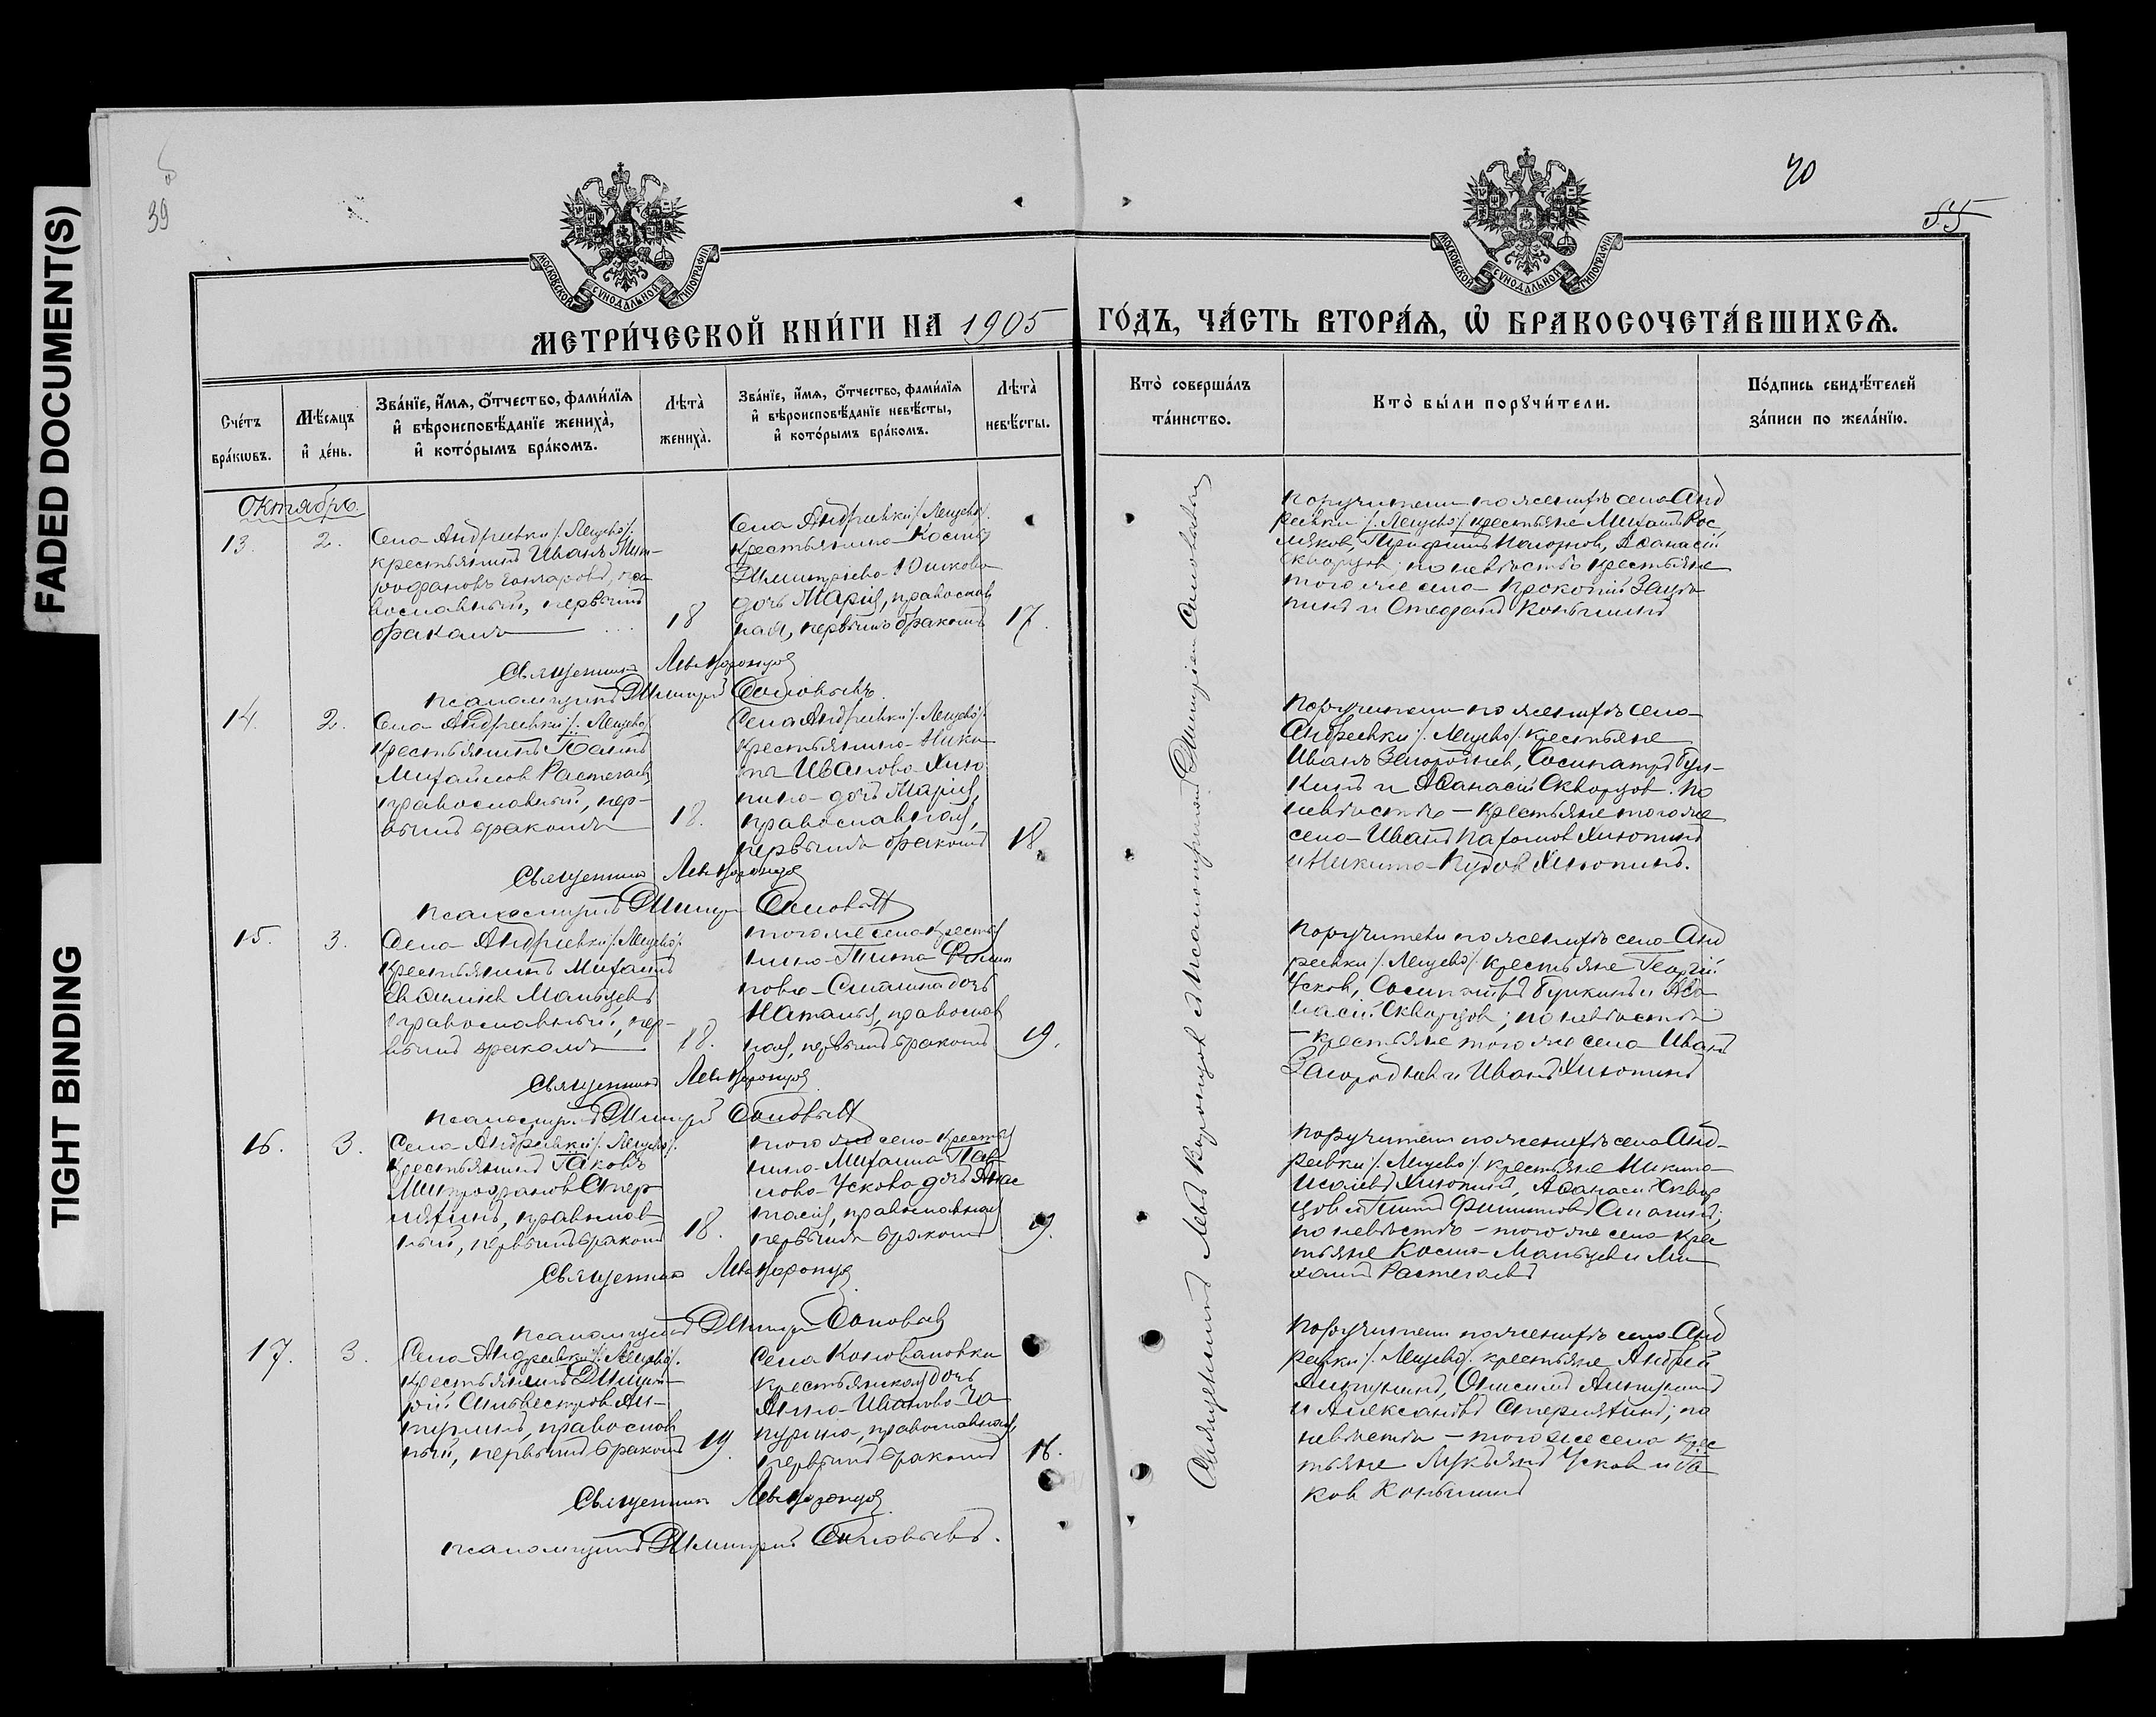 FADED DOCUMENT(S)
TIGHT BINDING
39
40
55
МОСКОВСКОЙ СѴНОДАЛЬНОЙ ТИПОГРАФІИ
МОСКОВСКОЙ СѴНОДАЛЬНОЙ ТИПОГРАФІИ
МЕТРИ́ЧЕСКОЙ КНИ́ГИ НА 1905 ГО́ДЪ, ЧА́СТЬ ВТОРА́Я, Ѽ БРАКОСОЧЕТА́ВШИХСѦ.
Сче́тъ бра́кѡвъ.
Мѣ́сяцъ и҆ де́нь.
Зва́нїе, и҆́мя, ѻ҆́тчество, фами́лїя
и҆ вѣроисповѣ́данїе жениха̀,
и҆ кото́рымъ бра́комъ.
Лѣта̀ жениха̀.
Зва́нїе, и҆́мя, ѻ҆́тчество, фами́лїя
и҆ вѣроисповѣ́данїе невѣ́сты,
и҆ кото́рымъ бра́комъ.
Лѣта̀ невѣ́сты.
Кто̀ соверша́лъ та́инство.
Кто̀ бы́ли порꙋчи́тели.
По́дпись свидѣ́телей за́писи по жела́нїю.
Октябрь
13.
2.
Села Андреевки /: Лещево:/
крестьянинъ Иванъ Мит-
рофановъ Гончаровъ, пра
вославный, первымъ
бракомъ
18
Села Андреевки /: Лещево
крестьянина Косьмы
Димитріева Юшкова
дочь Марія, православ
ная, первымъ бракомъ
17.
Поручители по женихѣ села Анд
реевки /: Лещево:/ крестьяне Михаилъ Рос
ляков, Трофимъ Нагорнов, Аѳанасій
Скворцов; по невѣстѣ крестьяне
того же села Прокопій
и Стефанъ Конышинъ
Священникъ Левъ Воронцов
псаломщикъ Димитрій Соловьевъ
14.
2.
Села Андреевки /: Лещево:/
крестьянинъ Павелъ
Михайлов Растегаев,
православный, пер-
вымъ бракомъ
18.
Села Андреевки /: Лещево:/
крестьянина Ники
ты Иванова Хлю
пина дочь Марія,
православная,
первымъ бракомъ
18.
Поручители по женихѣ села
Андреевки /: Лещево:/ крестьяне
Иванъ Загороднев, Сосипатръ Гул-
кинъ и Аѳанасій Скворцов. По
невѣстѣ – крестьяне того же
села Иванъ Пахомов Хлюпинъ
и Никита Пудов Хлюпинъ.
Священникъ Левъ Воронцов
псаломщикъ Димитрій Соловьев
15.
3.
Села Андреевки /: Лещево:/
крестьянинъ Михаилъ
Евѳиміев Мальцевъ
православный, пер-
вымъ бракомъ
18.
того же села крестья
нина Тита Филип
пова Смагина дочь
Наталія, православ
ная, первымъ бракомъ
19.
Поручители по женихѣ села Анд
реевки /: Лещево:/ крестьяне Георгій
Усков, Сосипатръ Гулкинъ и Аѳа
насій Скворцов; по невѣстѣ
– крестьяне того же села Иванъ
Загороднев и Иванъ Хлюпинъ
Священникъ Левъ Воронцов
псаломщикъ Димитрій Соловьев
16.
3.
Села Андреевки /: Лещево:/
крестьянинъ Іаковъ
Митрофанов Стер
ляхинъ, православ
ный, первымъ бракомъ
18.
того же села крестья
нина Михаила Пав
лова Ускова дочь Анас
тасія, православная
первымъ бракомъ
19.
Поручители по женихѣ села Анд-
реевки /: Лещево:/ крестьяне Никита
Хлюпинъ, Аѳанасій Сквор
цов и Титъ Филиппов Смагинъ;
по невѣстѣ – того же села крес
тьяне Косьма Мальцев и Ми
хаилъ Растегаевъ
Священникъ Левъ Воронцов
псаломщикъ Димитрій Соловьев
17.
3.
Села Андреевки /: Лещево:/
крестьянинъ Димит-
рій Сильвестров Ан-
православ
ный, первымъ бракомъ
19.
Села Коновановки
крестьянская дочь
Анна Иванова Ча
пурина, православная,
первымъ бракомъ
16.
Поручители по женихѣ села Анд
реевки /: Лещево:/ крестьяне Андрей
и Александръ Стерляхинъ; по
невѣстѣ – того же села крес
тьяне Лукьянъ Усков и Іа
ков Конышинъ
Священникъ Левъ Воронцов
псаломщикъ Димитрій Соловьевъ.
Священникъ Левъ Воронцов с псаломщикомъ Димитріем Соловьевым